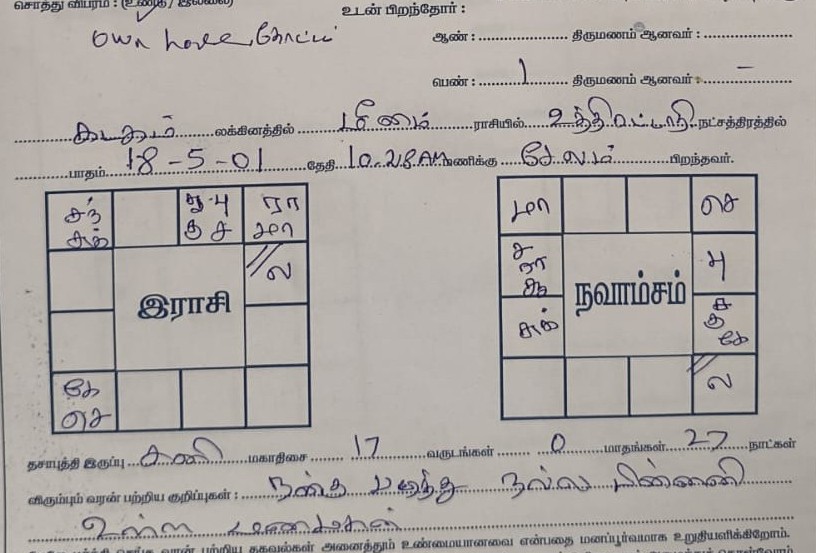 சொத்து விபரம் : (உண்டு / இல்லை)
உடன் பிறந்தோர் :
own house தோட்டம்
ஆண் : .................... திருமணம் ஆனவர் : ....................
பெண் : 1 திருமணம் ஆனவர் : –
கடகம் லக்கினத்தில் மீனம் ராசியில் உத்திரட்டாதி நட்சத்திரத்தில்
பாதம் 18-5-01 தேதி 10.28AM மணிக்கு சேலம் பிறந்தவர்.
சந் சுக்
சூ பு குரு ச
ரா மா
ல
இராசி
கே செ
மா
செ
பு
கே
சுக்
ல
நவாம்சம்
தசாபுத்தி இருப்பு சனி மகாதிசை 17 வருடங்கள் 0 மாதங்கள் 27 நாட்கள்
விரும்பும் வரன் பற்றிய குறிப்புகள் : நன்கு படித்த நல்ல பின்னணி
உள்ள மணமகன்
வரன் பற்றிய தகவல்கள் அனைத்தும் உண்மையானவை என்பதை மனப்பூர்வமாக உறுதியளிக்கிறோம்.